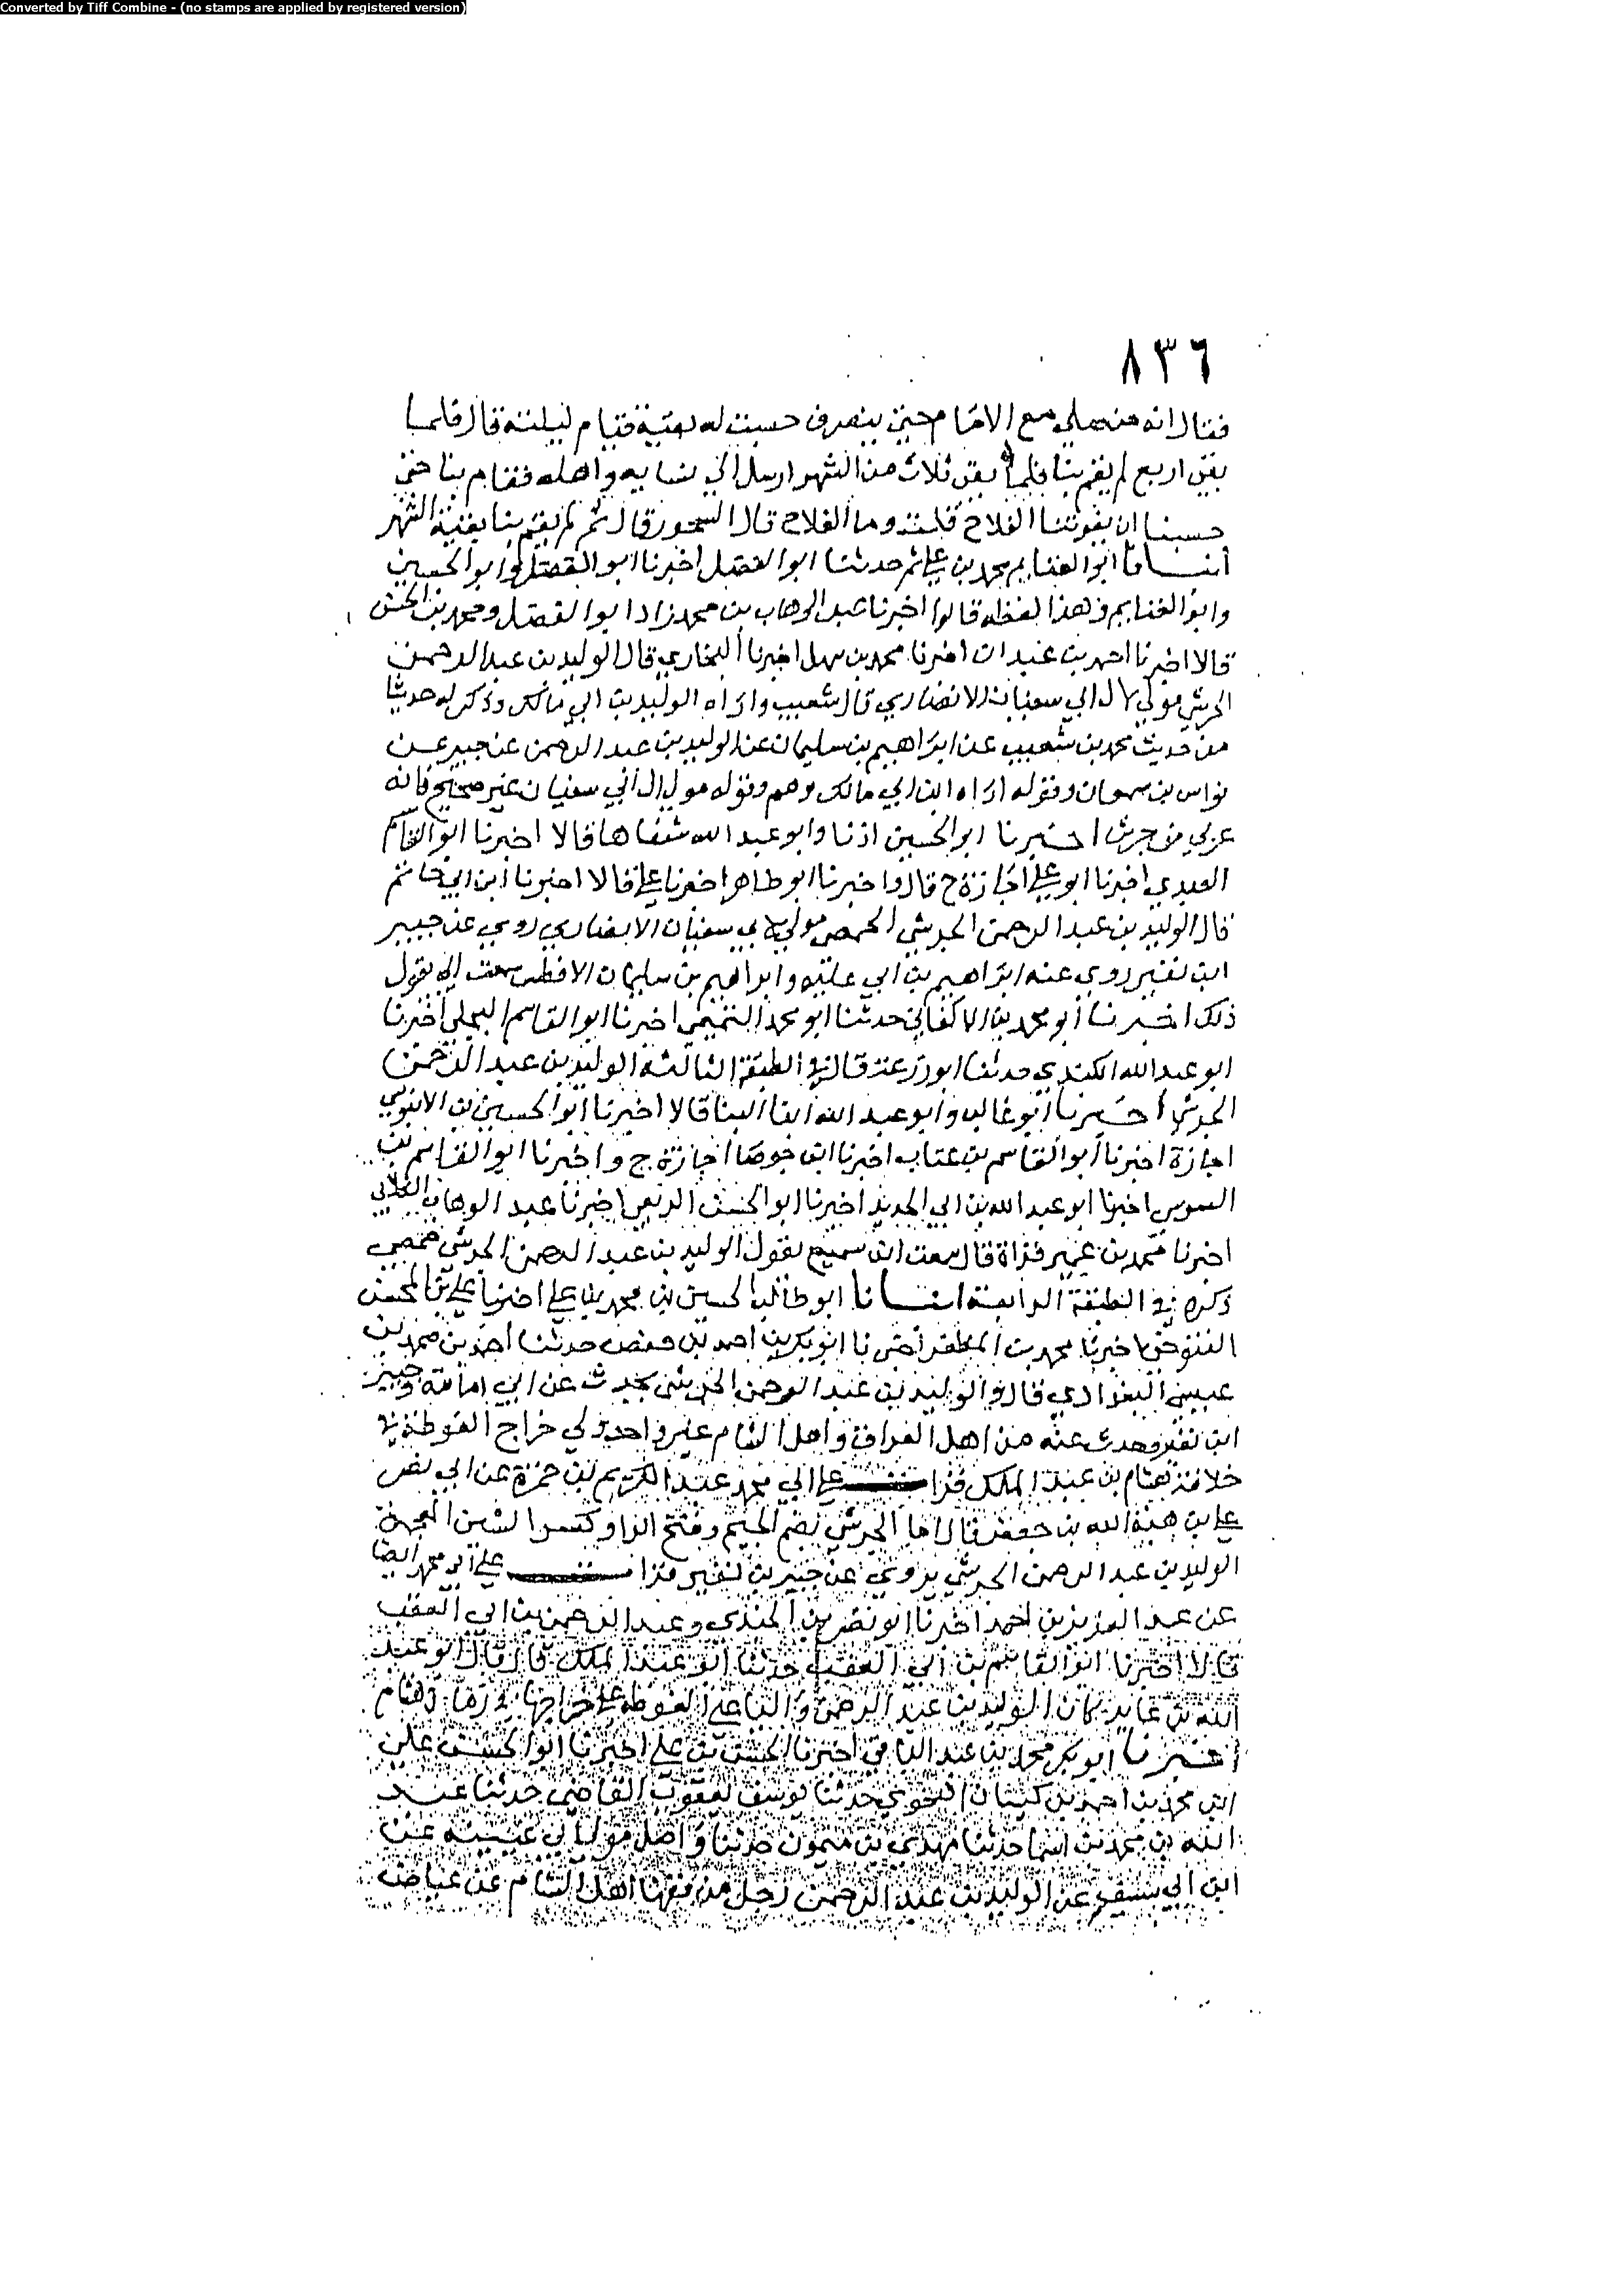 Converted by Tiff Combine - (no stamps are applied by registered version)
٨٣٦
فقال انه من صلى مع الامام حتى ينصرف حسبت له بقية قيام ليلته قال فلما
بقي اربع لم يقم بنا فلما بقي ثلاث من الشهر ارسل الي نسايه واهله فقام بنا حتى
حسبنا ان يفوتنا الفلاح قلت وما الفلاح قال السحور قال ثم لم يقم بنا بقية الشهر
أنبانا ابو الغنايم محمد بن علي ثم حدثنا ابو الفضل اخبرنا ابو الفضل وابو الحسين
وابو الغنايم وهذا لفظه قالوا اخبرنا عبد الوهاب بن محمد زاد ابو الفضل ومحمد بن الحسن
قالا اخبرنا احمد بن عبدان اخبرنا محمد بن سهل اخبرنا البخاري قال الوليد بن عبد الرحمن
الجرشي مولى لال ابي سفيان الانصاري قال شعيب واراه الوليد بن ابي مالك وذكر له حديثا
من حديث محمد بن شعيب عن ابراهيم بن سليمان عن الوليد بن عبد الرحمن عن جبير عن
نواس بن سمعان وقوله اراه ابن ابي مالك وهم وقوله مولى ال ابي سفيان غير صحيح فانه
عربي من جرش اخبرنا ابو الحسين اذنا وابو عبد الله شفاها قالا اخبرنا ابو القاسم
العبدي اخبرنا ابو علي اجازة ح قال واخبرنا ابو طاهر اخبرنا علي قالا اخبرنا ابن ابي حاتم
قال الوليد بن عبد الرحمن الجرشي الحمصي مولى لابي سفيان الانصاري روى عن جبير
ابن نفير روى عنه ابراهيم بن ابي علبه وابراهيم بن سليمان الافطس سمعت ابي يقول
ذلك اخبرنا ابو محمد بن الاكفاني حدثنا ابو محمد التميمي اخبرنا ابو القاسم البجلي اخبرنا
ابو عبد الله الكندي حدثنا ابو زرعة قال في الطبقة الثالثة الوليد بن عبد الرحمن
الجرشي اخبرنا ابو غالب وابو عبد الله ابنا البنا قالا اخبرنا ابو الحسين بن الابنوسي
اجازة اخبرنا ابو القاسم بن عتاب اخبرنا ابن جوصا اجازة ح واخبرنا ابو القاسم بن
السوسي اخبرنا ابو عبد الله بن ابي الحديد اخبرنا ابو الحسن الربعي اخبرنا عبد الوهاب الكلابي
اخبرنا احمد بن عمير قراة قال سمعت ابن سميع يقول الوليد بن عبد الرحمن الجرشي حمصي
ذكره في الطبقة الرابعة انبانا ابو طالب الحسين بن محمد بن علي اخبرنا علي بن المحسن
التنوخي اخبرنا محمد بن المظفر اخبرنا ابو بكر بن احمد بن حفص حدثنا احمد بن محمد بن
عيسى البغدادي قال والوليد بن عبد الرحمن الجرشي يحدث عن ابي امامة وجبير
ابن نفير وحدث عنه من اهل العراق واهل الشام غير واحد ولي خراج الغوطة في
خلافة هشام بن عبد الملك قرات علي ابي محمد عبد الكريم بن حمزة عن ابي نصر
علي بن هبة الله بن جعفر قال اما الجرشي بضم الجيم وفتح الرا وكسر الشين المعجمة
الوليد بن عبد الرحمن الجرشي يروي عن جبير بن نفير قرات علي ابي محمد ايضا
عن عبد العزيز بن احمد اخبرنا ابو نصر بن الجندي وعبد الرحمن بن ابي العقب
قالا اخبرنا ابو القاسم بن ابي العقب حدثنا ابو عبد الملك قال قال ابو عبد
الله بن عايذ كان الوليد بن عبد الرحمن واليا على الغوطه على خراجها في زمان هشام
اخبرنا ابو بكر محمد بن عبد الباقي اخبرنا الحسن بن علي اخبرنا ابو الحسن علي بن
محمد بن احمد بن كيسان النحوي حدثنا يوسف بن يعقوب القاضي حدثنا عبد
الله بن محمد بن اسما حدثنا مهدي بن ميمون حدثنا واصل مولى ابي عيينه عن
ابن ابي سيف عن الوليد بن عبد الرحمن رجل من فقها اهل الشام عن عياض